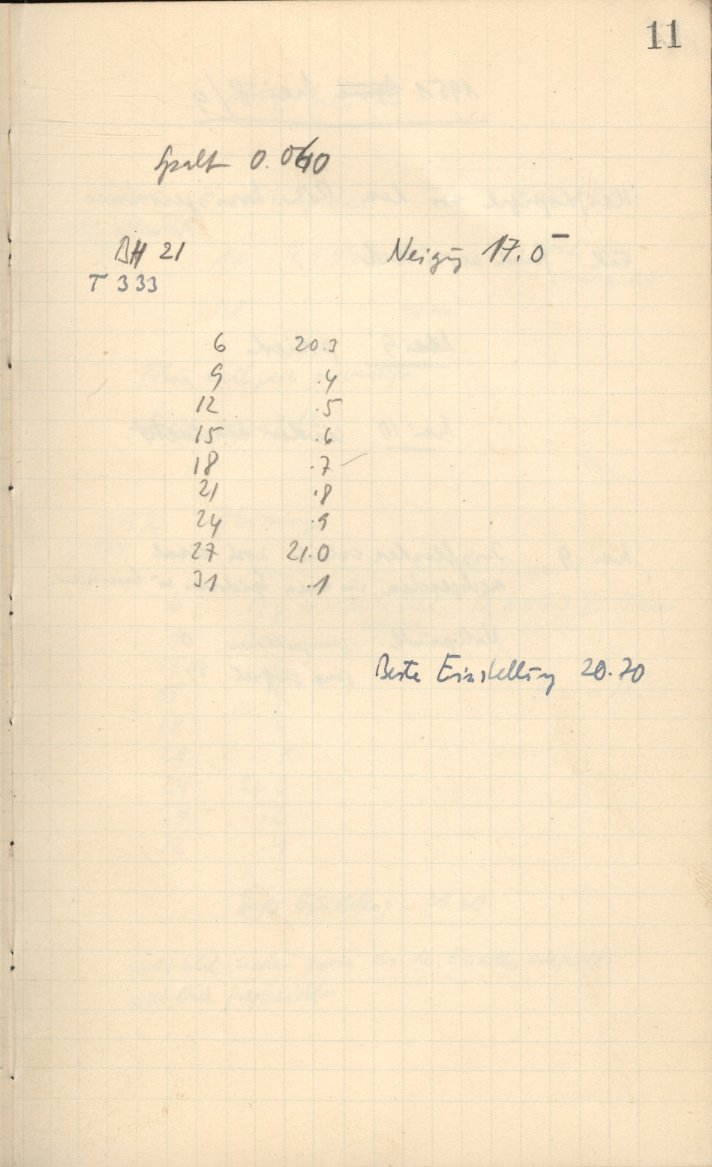 11
Spalt 0.040
BH 21 Neigg 17.5
T 333
6 20.3
9 .4
12 .5
15 .6
18 .7
21 .8
24 .9
27 21.0
31 .1
Beste Einstellung 20.70